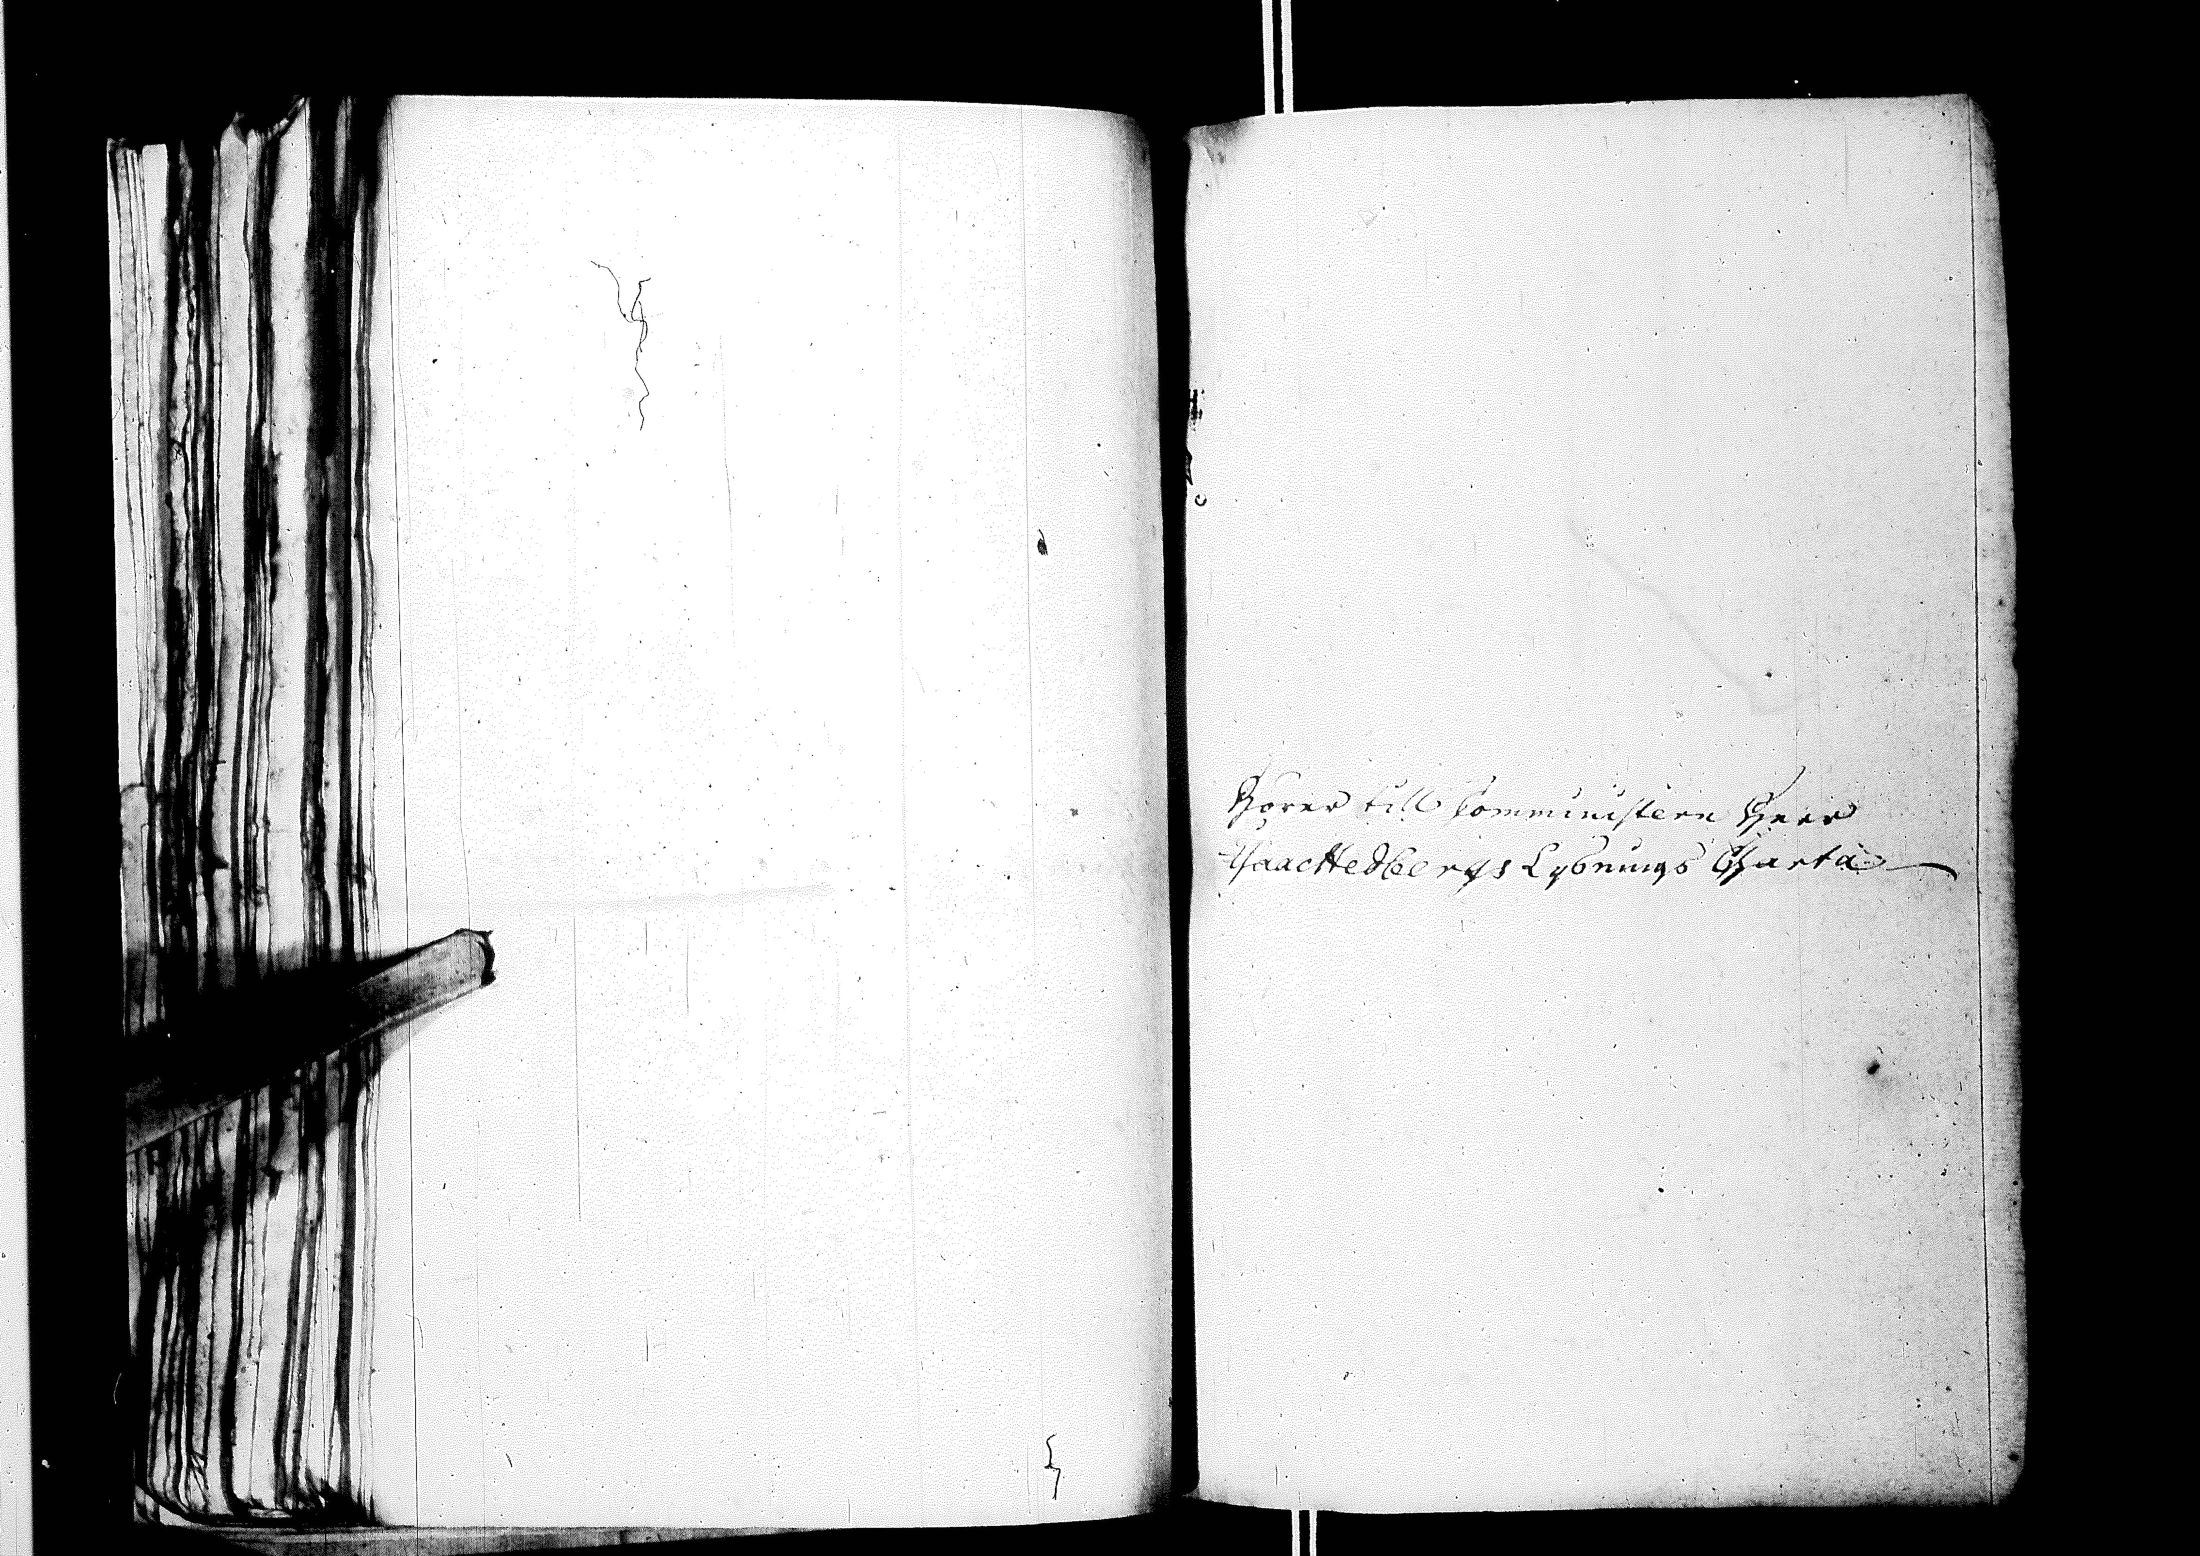 Hörer till Comministern Herr
Isaac Hedbergs Lysnings Charta